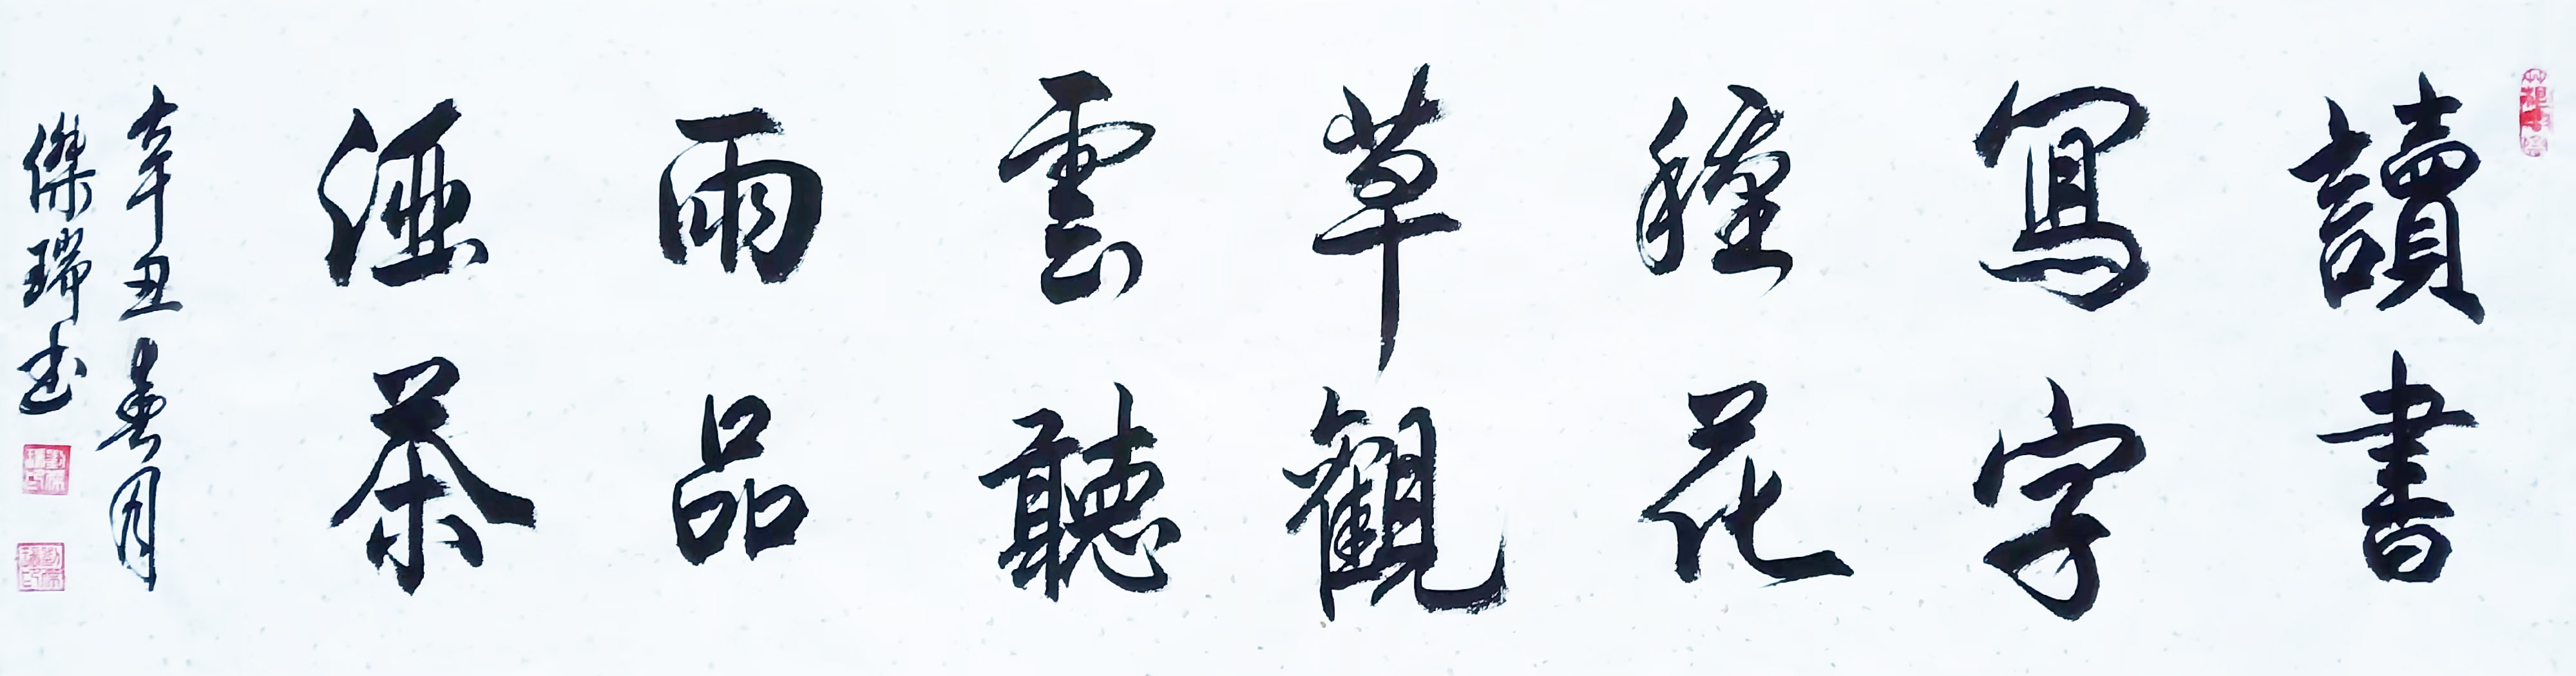 讀書
寫字
種花
草觀
雲聽
雨品
酒茶
辛丑春月
傑瑞书